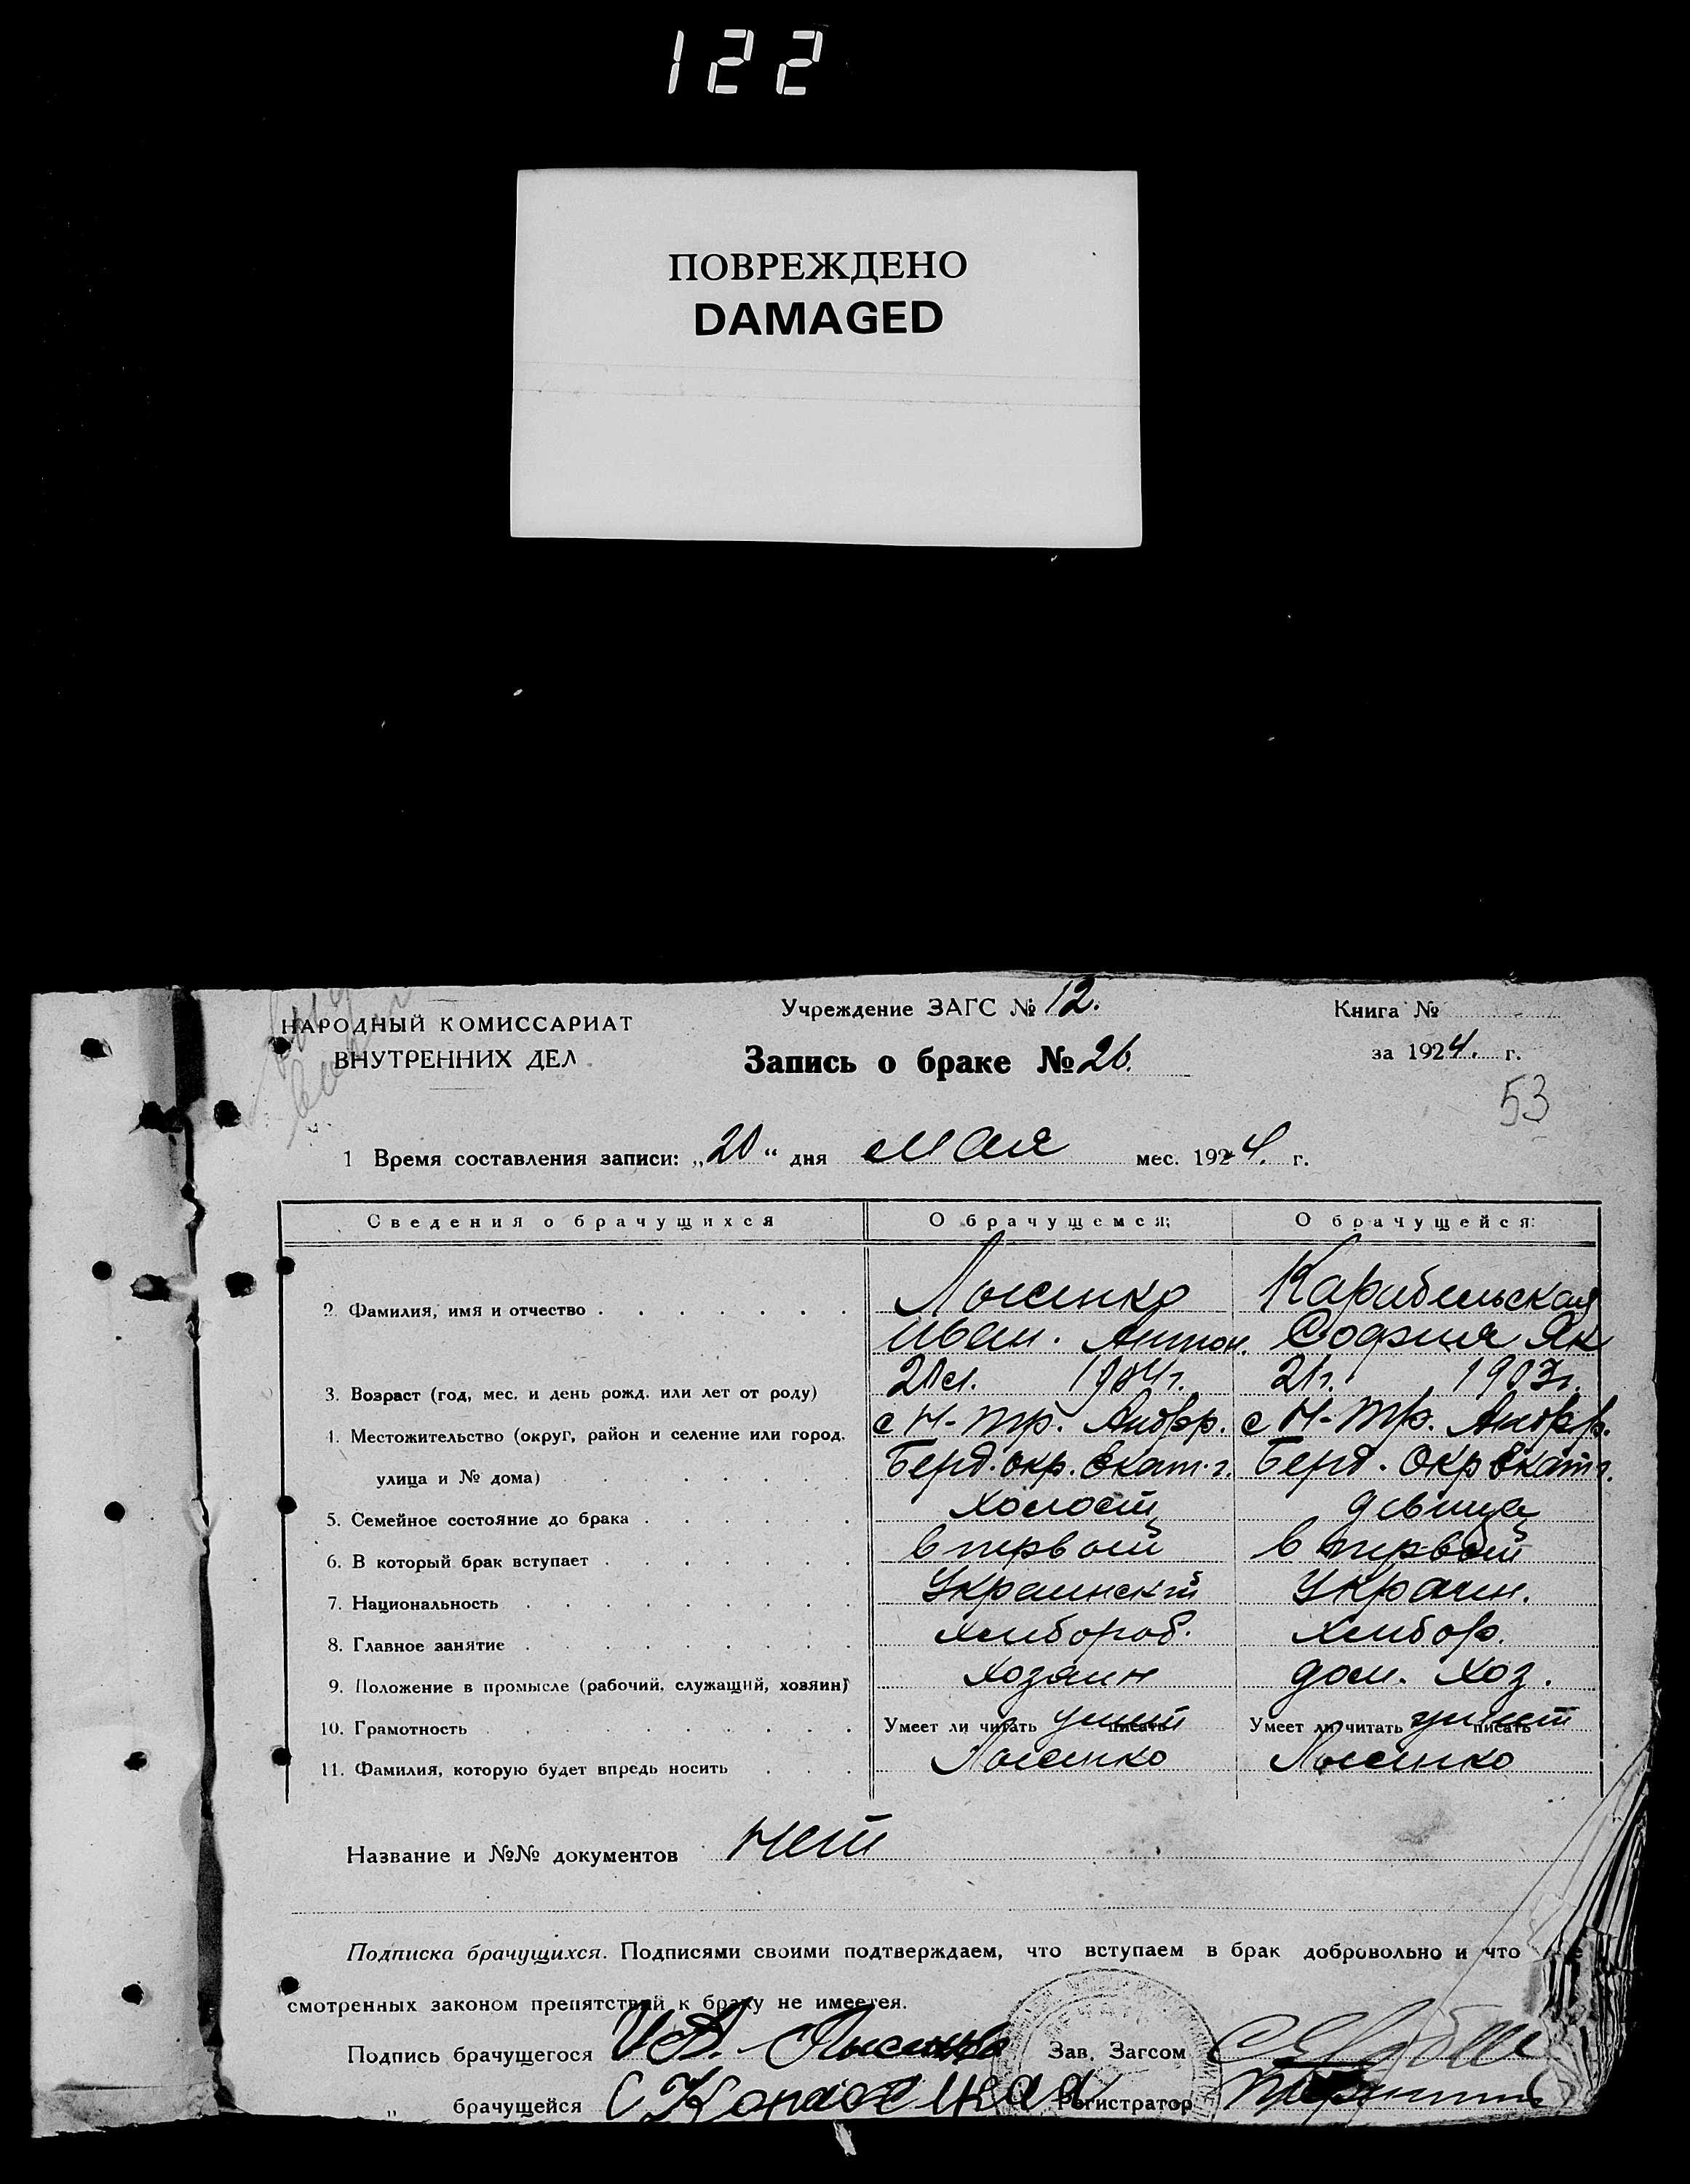 122
ПОВРЕЖДЕНО
DAMAGED
НАРОДНЫЙ КОМИССАРИАТ
ВНУТРЕННИХ ДЕЛ
Учреждение ЗАГС № 12.
Запись о браке № 26.
Книга №
за 1924. г.
53
1 Время составления записи: „20“ дня мая мес. 1924. г.
Сведения о брачущихся О брачущемся: О брачущейся:
2. Фамилия, имя и отчество Лысенко Карабельская
Иван. Антон. София Як
3. Возраст (год, мес. и день рожд. или лет от роду) 20л. 1904г. 21г. 1903г.
4. Местожительство (округ, район и селение или город, с Н-тр. Андр. с Н-тр. Андр.
улица и № дома) Берд. окр. Екат. г. Берд. Окр Екат г.
5. Семейное состояние до брака холост девица
6. В который брак вступает в первый в первый
7. Национальность Украинский Украин.
8. Главное занятие хлебороб. хлебор.
9. Положение в промысле (рабочий, служащий, хозяин) хозяин дом. хоз.
10. Грамотность Умеет ли читать умеет писать Умеет ли читать умеет писать
11. Фамилия, которую будет впредь носить Лысенко Лысенко
Название и №№ документов нет
Подписка брачущихся. Подписями своими подтверждаем, что вступаем в брак добровольно и что
смотренных законом препятствий к браку не имеется.
Подпись брачущегося И.А. Лысенко Зав. Загсом
„ брачущейся Регистратор